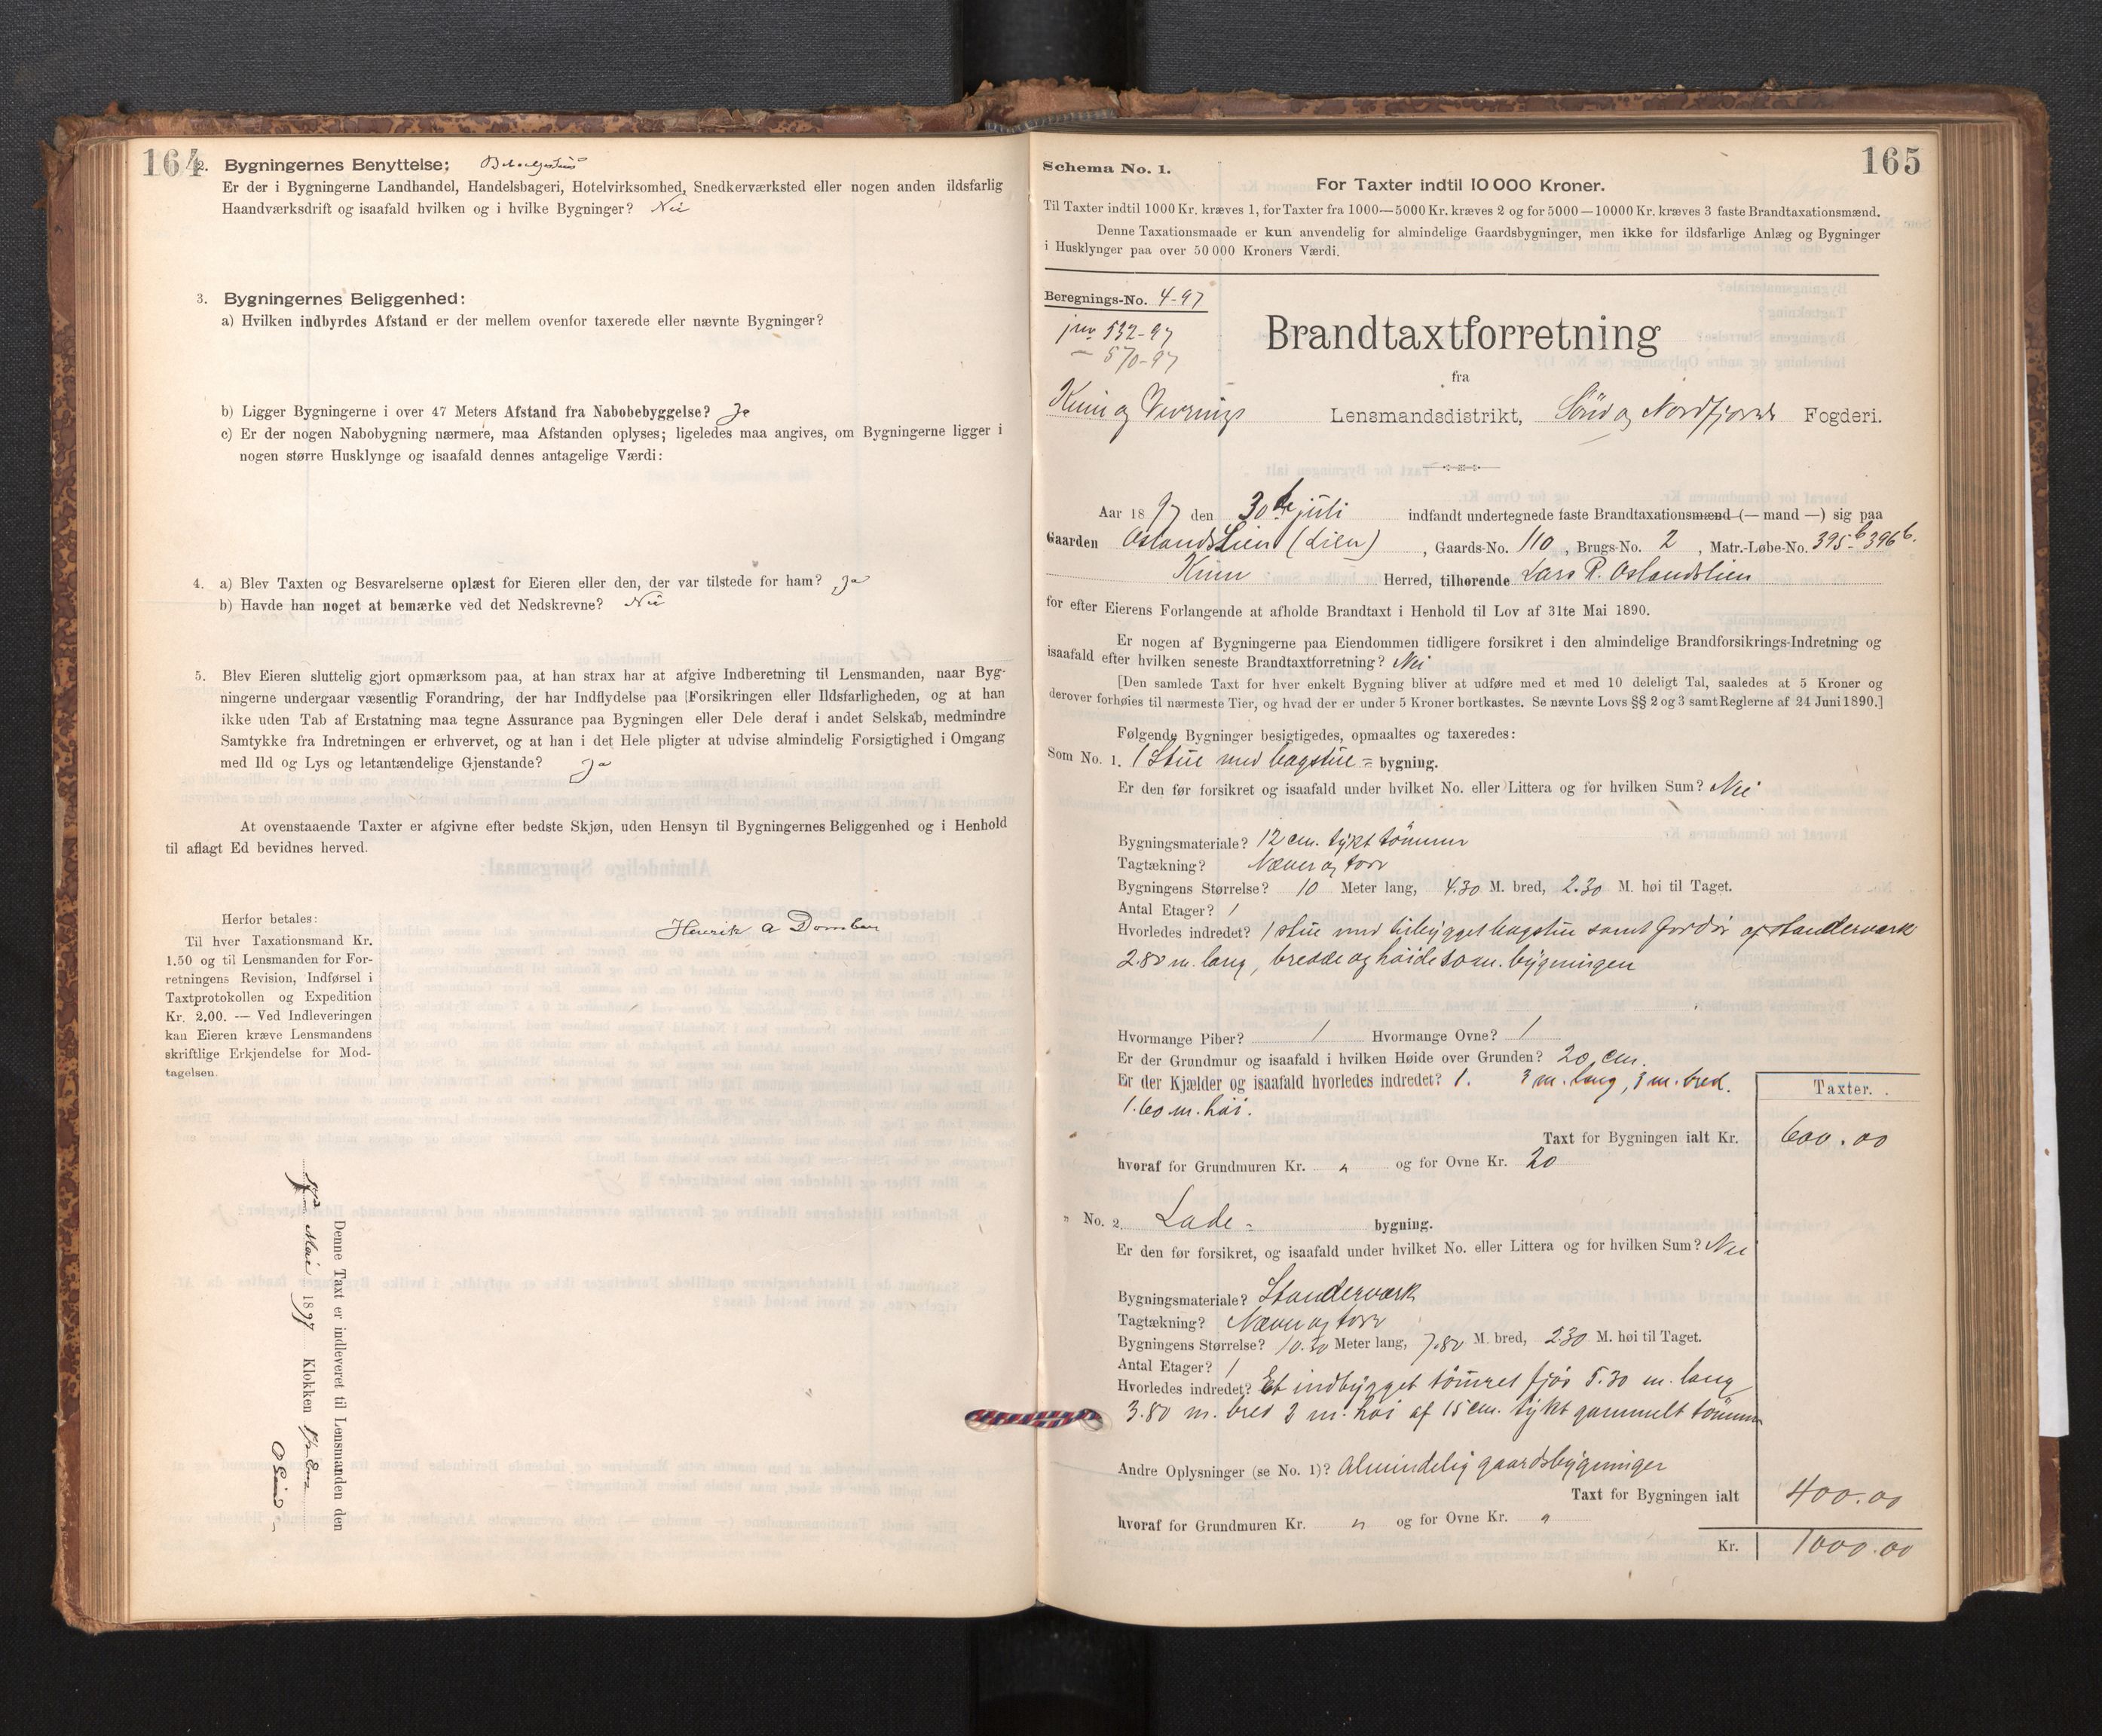 164
2. Bygningernes Benyttelse:
Er der i Bygningerne Landhandel, Handelsbageri, Hotelvirksomhed, Snedkerværksted eller nogen anden ildsfarlig
Haandværksdrift og isaafald hvilken og i hvilke Bygninger? Nei
3. Bygningernes Beliggenhed:
a) Hvilken indbyrdes Afstand er der mellem ovenfor taxerede eller nævnte Bygninger?
b) Ligger Bygningerne i over 47 Meters Afstand fra Nabobebyggelse? Ja
c) Er der nogen Nabobygning nærmere, maa Afstanden oplyses; ligeledes maa angives, om Bygningerne ligger i
nogen større Husklynge og isaafald dennes antagelige Værdi:
4. a) Blev Taxten og Besvarelserne oplæst for Eieren eller den, der var tilstede for ham? Ja
b) Havde han noget at bemærke ved det Nedskrevne? Nei
5. Blev Eieren sluttelig gjort opmærksom paa, at han strax har at afgive Indberetning til Lensmanden, naar Byg-
ningerne undergaar væsentlig Forandring, der har Indflydelse paa Forsikringen eller Ildsfarligheden, og at han
ikke uden Tab af Erstatning maa tegne Assurance paa Bygningen eller Dele deraf i andet Selskab, medmindre
Samtykke fra Indretningen er erhvervet, og at han i det Hele pligter at udvise almindelig Forsigtighed i Omgang
med Ild og Lys og letantændelige Gjenstande? Ja
At ovenstaaende Taxter er afgivne efter bedste Skjøn, uden Hensyn til Bygningernes Beliggenhed og i Henhold
til aflagt Ed bevidnes herved.
Henrik A
Herfor betales:
Til hver Taxationsmand Kr.
1.50 og til Lensmanden for For-
retningens Revision, Indførsel i
Taxtprotokollen og Expedition
Kr. 2.00. — Ved Indleveringen
kan Eieren kræve Lensmandens
skriftlige Erkjendelse for Mod-
tagelsen.
Denne Taxt er indleveret til Lensmanden den
Mai 1897 Klokken
165
Schema No. 1.
For Taxter indtil 10 000 Kroner.
Til Taxter indtil 1000 Kr. kræves 1, for Taxter fra 1000—5000 Kr. kræves 2 og for 5000—10000 Kr. kræves 3 faste Brandtaxationsmænd.
Denne Taxationsmaade er kun anvendelig for almindelige Gaardsbygninger, men ikke for ildsfarlige Anlæg og Bygninger
i Husklynger paa over 50 000 Kroners Værdi.
Beregnings-No. 4-97
jnr. 532-97
— 570-97
Brandtaxtforretning
fra
Kinn og Vevrings Lensmandsdistrikt, Sönd og Nordfjords Fogderi.
Aar 1897 den 30de juli indfandt undertegnede faste Brandtaxationsmænd (— mand —) sig paa
Gaarden Oslandslien (Lien), Gaards-No. 110, Brugs-No. 2, Matr.-Løbe-No. 395b 396b.
Kinn Herred, tilhørende Lars R. Oslandslien
for efter Eierens Forlangende at afholde Brandtaxt i Henhold til Lov af 31te Mai 1890.
Er nogen af Bygningerne paa Eiendommen tidligere forsikret i den almindelige Brandforsikrings-Indretning og
isaafald efter hvilken seneste Brandtaxtforretning? Nei
[Den samlede Taxt for hver enkelt Bygning bliver at udføre med et med 10 deleligt Tal, saaledes at 5 Kroner og
derover forhøies til nærmeste Tier, og hvad der er under 5 Kroner bortkastes. Se nævnte Lovs §§ 2 og 3 samt Reglerne af 24 Juni 1890.]
Følgende Bygninger besigtigedes, opmaaltes og taxeredes:
Som No. 1. 1 Stue med bagstue = bygning.
Er den før forsikret og isaafald under hvilket No. eller Littera og for hvilken Sum? Nei
Bygningsmateriale? 12 cm. tykt tömmer
Tagtækning? Næver og torv
Bygningens Størrelse? 10 Meter lang, 4.30 M. bred, 2.30 M. høi til Taget.
Antal Etager? 1
Hvorledes indredet? 1 stue med tilbygget bagstue samt fordör af standerværk
2.80 m. lang, bredde og höide som bygningen
Hvormange Piber? 1 Hvormange Ovne? 1
Er der Grundmur og isaafald i hvilken Høide over Grunden? 20 cm.
Er der Kjælder og isaafald hvorledes indredet? 1. 3 m. lang, 3 m. bred.
1.60 m. höi.
Taxter.
Taxt for Bygningen ialt Kr. 600.00
hvoraf for Grundmuren Kr. " og for Ovne Kr. 20
" No. 2. Lade = bygning.
Er den før forsikret, og isaafald under hvilket No. eller Littera og for hvilken Sum? Nei
Bygningsmateriale? Standerværk
Tagtækning? Næver og torv
Bygningens Størrelse? 10.30 Meter lang, 7.80 M. bred, 2.30 M. høi til Taget.
Antal Etager? 1
Hvorledes indredet? Et indbygget tömret fjös 5.30 m. lang
3.80 m. bred 2 m. höi af 15 cm. tykt gammelt tömmer
Andre Oplysninger (se No. 1)? Almindelig gaardsbygninger
Taxt for Bygningen ialt 400.00
hvoraf for Grundmuren Kr. " og for Ovne Kr. "
Kr. 1000.00